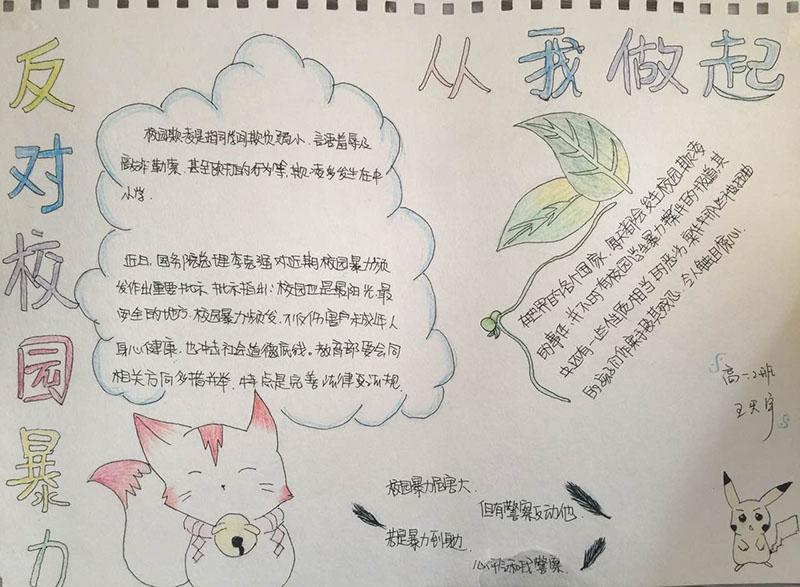 反对校园暴力
从我做起
校园欺凌是指同学间欺负弱小、言语羞辱及
敲诈勒索、甚至殴打的行为等,欺凌多发生在中
小学.
近日,国务院总理李克强对近期校园暴力频
发作出重要批示.批示指出:校园应是最阳光、最
安全的地方.校园暴力频发,不仅伤害未成年人
身心健康,也冲击社会道德底线。教育部要会同
相关方面多措并举,特点是完善法律及法规.
在世界的各个国家,每天都会发生校园欺凌
的事件.并不时有校园发生暴力案件的报道.其
中还有一些性质相当的恶劣,案件那些被扭曲
的 作案手段其残忍,令人触目惊心.
高一.2班
校园暴力危害大.
但有警察
若是暴力到身边.
警察.